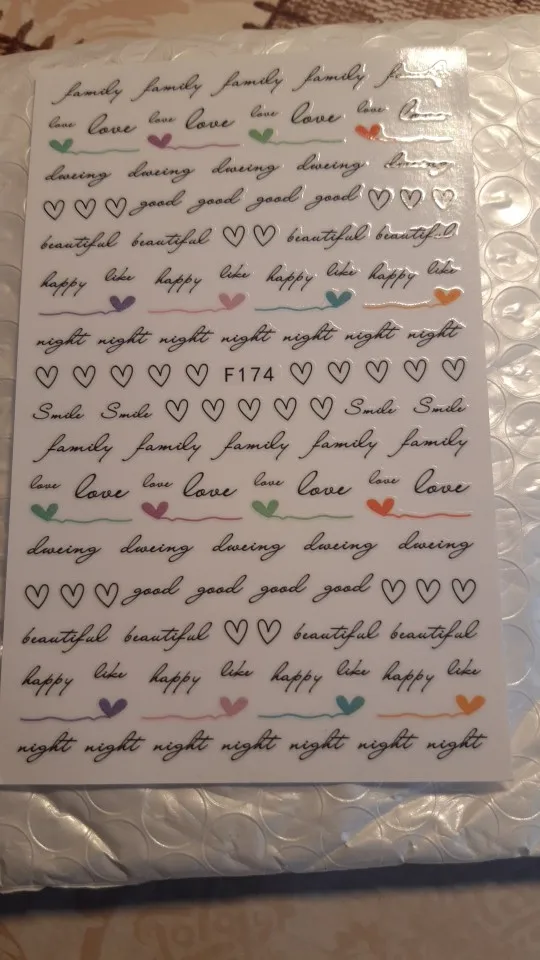 family family family family
love love love love love love love
dweing dweing dweing dweing
good good good good
beautiful beautiful beautiful beautiful
happy like happy like happy like happy like
night night night night night night night
F174
Smile Smile Smile Smile
family family family family family
love love love love love love love love
dweing dweing dweing dweing dweing
good good good good
beautiful beautiful beautiful beautiful
happy like happy like happy like happy like
night night night night night night night